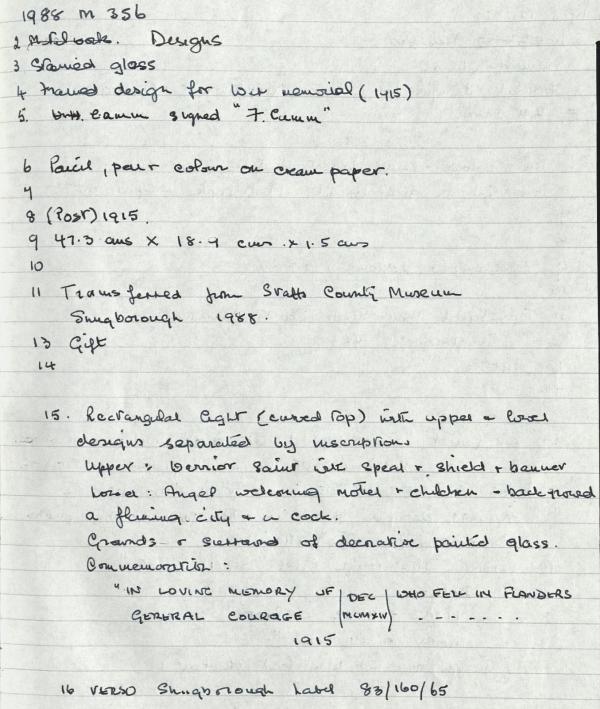 1988 M 356
2 Designs
3 Stained glass
4 Framed design for War memorial (1915)
5. Camm signed "F. Camm"
6 Pencil, pen + colour on cream paper.
7
8 (Post) 1915.
9 47.3 cms X 18.9 cms x 1.5 cms
10
11 Transferred from Staffs County Museum
Shugborough 1988.
13 Gift
14
15. Rectangular light (curved top) with upper + lower
designs separated by inscription.
Upper : Warrior Saint with spear + shield + banner
Lower : Angel welcoming mother + children - background
a flaming city + a cock.
Grounds + surround of decorative painted glass.
Commemoration :
"IN LOVING MEMORY OF | DEC | WHO FELL IN FLANDERS
GENERAL COURAGE | MCMXIV | - - - - - - -
1915
16 VERSO Shugborough Label 83/160/65